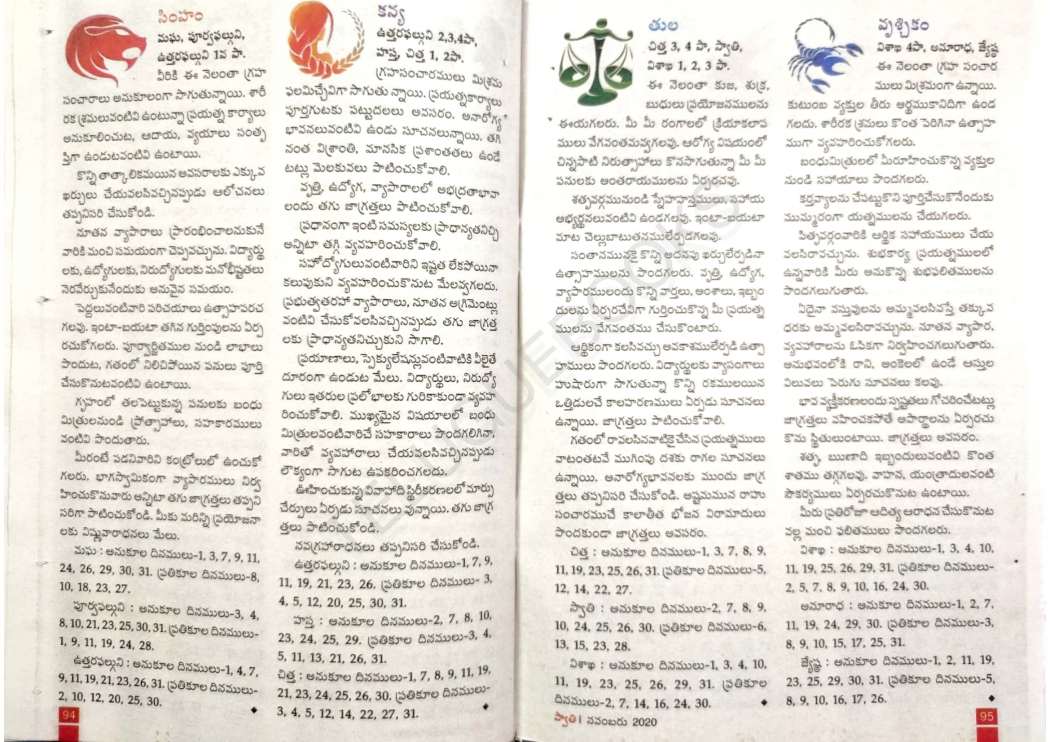 సింహం
మఘ, పూర్వఫల్గుని,
ఉత్తరఫల్గుని 1వ పా.
వీరికి ఈ నెలంతా గ్రహ
సంచారాలు అనుకూలంగా సాగుతున్నాయి. శారీ
రక శ్రమలువంటివి ఉంటున్నా ప్రయత్న కార్యాలు
అనుకూలించుట, ఆదాయ, వ్యయాలు సంతృ
ప్తిగా ఉండుటవంటివి ఉంటాయి.
కొన్ని తాత్కాలికమయిన అవసరాలకు ఎక్కువ
ఖర్చులు చేయవలసివచ్చినప్పుడు ఆలోచనలు
తప్పనిసరి చేసుకోండి.
నూతన వ్యాపారాలు ప్రారంభించాలనుకునే
వారికి మంచి సమయంగా చెప్పవచ్చును. విద్యార్థు
లకు, ఉద్యోగులకు, నిరుద్యోగులకు మనోభీష్టతలు
నెరవేర్చుకునేందుకు అనువైన సమయం.
పెద్దలువంటివారి పరిచయాలు ఉత్సాహపరచ
గలవు. ఇంటా-బయటా తగిన గుర్తింపులను ఏర్ప
రచుకోగలరు. పూర్వార్జితముల నుండి లాభాలు
పొందుట, గతంలో నిలిచిపోయిన పనులు పూర్తి
చేసుకొనుటవంటివి ఉంటాయి.
గృహంలో తలపెట్టుకున్న పనులకు బంధు
మిత్రులనుండి ప్రోత్సాహాలు, సహకారములు
వంటివి పొందుతారు.
మీరంటే పడనివారిని కంట్రోలులో ఉంచుకో
గలరు. భాగస్వామికంగా వ్యాపారములు నిర్వ
హించుకొనువారు అన్నిటా తగు జాగ్రత్తలు తప్పని
సరిగా పాటించుకోండి. మీకు మరిన్ని ప్రయోజనా
లకు విష్ణువారాధనలు మేలు.
మఘ : అనుకూల దినములు-1, 3, 7, 9, 11,
24, 26, 29, 30, 31. ప్రతికూల దినములు-8,
10, 18, 23, 27.
పూర్వఫల్గుని : అనుకూల దినములు-3, 4,
8, 10, 21, 23, 25, 30, 31. ప్రతికూల దినములు-
1, 9, 11, 19, 24, 28.
ఉత్తరఫల్గుని : అనుకూల దినములు-1, 4, 7,
9, 11, 19, 21, 23, 26, 31. ప్రతికూల దినములు-
2, 10, 12, 20, 25, 30.
94
కన్య
ఉత్తరఫల్గుని 2,3,4పా,
హస్త, చిత్త 1, 2పా.
గ్రహసంచారములు మిశ్రమ
ఫలమిచ్చేవిగా సాగుతు న్నాయి. ప్రయత్నకార్యాలు
పూర్తగుటకు పట్టుదలలు అవసరం. అనారోగ్య
భావనలువంటివి ఉండు సూచనలున్నాయి. తగి
నంత విశ్రాంతి, మానసిక ప్రశాంతతలు ఉండే
టట్లు మెలకువలు పాటించుకోవాలి.
వృత్తి, ఉద్యోగ, వ్యాపారాలలో అభద్రతాభావా
లందు తగు జాగ్రత్తలు పాటించుకోవాలి.
ప్రధానంగా ఇంటి సమస్యలకు ప్రాధాన్యతనిచ్చి
అన్నిటా తగ్గి వ్యవహరించుకోవాలి.
సహోద్యోగులువంటివారిని ఇష్టత లేకపోయినా
కలుపుకుని వ్యవహరించుకొనుట మేలవ్వగలదు.
ప్రభుత్వతరహా వ్యాపారాలు, నూతన అగ్రిమెంట్లు
వంటివి చేసుకోవలసివచ్చినప్పుడు తగు జాగ్రత్త
లకు ప్రాధాన్యతనిచ్చుకుని సాగాలి.
ప్రయాణాలు, స్పెక్యులేషన్లువంటివాటికి వీలైతే
దూరంగా ఉండుట మేలు. విద్యార్థులు, నిరుద్యో
గులు ఇతరుల ప్రలోభాలకు గురికాకుండా వ్యవహ
రించుకోవాలి. ముఖ్యమైన విషయాలలో బంధు
మిత్రులవంటివారిచే సహకారాలు పొందగలిగినా.
వారితో వ్యవహారాలు చేయవలసివచ్చినప్పుడు
లౌక్యంగా సాగుట ఉపకరించగలదు.
ఊహించుకున్న వివాహాది స్థిరీకరణలలో మార్పు
చేర్పులు ఏర్పడు సూచనలు వున్నాయి. తగు జాగ్ర
త్తలు పాటించుకోండి.
నవగ్రహారాధనలు తప్పనిసరి చేసుకోండి.
ఉత్తరఫల్గుని : అనుకూల దినములు-1, 7, 9,
11, 19, 21, 23, 26. ప్రతికూల దినములు- 3,
4, 5, 12, 20, 25, 30, 31.
హస్త : అనుకూల దినములు-2, 7, 8, 10,
23, 24, 25, 29. ప్రతికూల దినములు- 3, 4,
5, 11, 13, 21, 26, 31.
చిత్త : అనుకూల దినములు-1, 7, 8, 9, 11, 19,
21, 23, 24, 25, 26, 30. ప్రతికూల దినములు-
3, 4, 5, 12, 14, 22, 27, 31.
తుల
చిత్త 3, 4 పా, స్వాతి,
విశాఖ 1, 2, 3 పా.
ఈ నెలంతా కుజ, శుక్ర,
బుధులు ప్రయోజనములను
ఈయగలరు. మీ మీ రంగాలలో క్రియాకలాప
ములు వేగవంతమవ్వగలవు. ఆరోగ్య విషయంలో
చిన్నపాటి నిరుత్సాహాలు కొనసాగుతున్నా మీ మీ
పనులకు అంతరాయములను ఏర్పరచవు.
శత్రువర్గమునుండి స్నేహహస్తములు, సహాయ
అభ్యర్థనలువంటివి ఉండగలవు. ఇంటా-బయటా
మాట చెల్లుబాటుతనములేర్పడగలవు.
సంతానమునకై కొన్ని అదనపు ఖర్చులేర్పడినా
ఉత్సాహములను పొందగలరు. వృత్తి, ఉద్యోగ,
వ్యాపారములందు కొన్ని వార్తలు, అంశాలు, ఇబ్బం
దులను ఏర్పరచేవిగా గుర్తించుకొన్న మీ ప్రయత్న
ములను వేగవంతము చేసుకొంటారు.
ఆర్థికంగా కలసివచ్చు అవకాశములేర్పడి ఉత్సా
హములు పొందగలరు. విద్యార్థులకు వ్యాసంగాలు
హుషారుగా సాగుతున్నా కొన్ని రకములయిన
ఒత్తిడులచే కాలహరణములు ఏర్పడు సూచనలు
ఉన్నాయి. జాగ్రత్తలు పాటించుకోవాలి.
గతంలో రావలసినవాటికైచేసిన ప్రయత్నములు
వాటంతటవే ముగింపు దశకు రాగల సూచనలు
ఉన్నాయి. అనారోగ్యభావనలకు ముందు జాగ్ర
త్తలు తప్పనిసరి చేసుకోండి. అష్టమమున రాహు
సంచారముచే కాలాతీత భోజన విరామాదులు
పొందకుండా జాగ్రత్తలు అవసరం.
చిత్త : అనుకూల దినములు-1, 3, 7, 8, 9,
11, 19, 23, 25, 26, 31. ప్రతికూల దినములు-5,
12, 14, 22, 27.
స్వాతి : అనుకూల దినములు-2, 7, 8, 9,
10, 24, 25, 26, 30. ప్రతికూల దినములు-6,
13, 15, 23, 28.
విశాఖ : అనుకూల దినములు-1, 3, 4, 10,
11, 19, 23, 25, 26, 29, 31. ప్రతికూల
దినములు-2, 7, 14, 16, 24, 30.
స్వాతి। నవంబరు 2020
వృశ్చికం
విశాఖ 4పా, అనూరాధ, జ్యేష్ఠ
ఈ నెలంతా గ్రహ సంచార
ములు మిశ్రమంగా ఉన్నాయి.
కుటుంబ వ్యక్తుల తీరు అర్థముకానిదిగా ఉండ
గలదు. శారీరక శ్రమలు కొంత పెరిగినా ఉత్సాహ
ముగా వ్యవహరించుకోగలరు.
బంధుమిత్రులలో మీరూహించుకొన్న వ్యక్తుల
నుండి సహాయాలు పొందగలరు.
కర్తవ్యాలను చేపట్టుకొని పూర్తిచేసుకొనేందుకు
ముమ్మరంగా యత్నములను చేయగలరు.
పితృవర్గంవారికి ఆర్థిక సహాయములు చేయ
వలసిరావచ్చును. శుభకార్య ప్రయత్నములలో
ఉన్నవారికి మీరు అనుకొన్న శుభఫలితములను
పొందగలుగుతారు.
ఏదైనా వస్తువులను అమ్మవలసివస్తే తక్కువ
ధరకు అమ్మవలసిరావచ్చును. నూతన వ్యాపార,
వ్యవహారాలను ఓపికగా నిర్వహించగలుగుతారు.
అనుభవంలోకి రాని, అంకెలలో ఉండే ఆస్తుల
విలువలు పెరుగు సూచనలు కలవు.
భావ వ్యక్తీకరణలందు స్పష్టతలు గోచరించేటట్లు
జాగ్రత్తలు వహించకపోతే అపార్థాలను ఏర్పరచు
కొను స్థితులుంటాయి. జాగ్రత్తలు అవసరం.
శత్రు, ఋణాది ఇబ్బందులువంటివి కొంత
శాతము తగ్గగలవు. వాహన, యంత్రాదులవంటి
సౌకర్యములు ఏర్పరచుకొనుట ఉంటాయి.
మీరు ప్రతిరోజూ ఆదిత్య ఆరాధన చేసుకొనుట
వల్ల మంచి ఫలితములు పొందగలరు.
విశాఖ : అనుకూల దినములు-1, 3, 4, 10,
11, 19, 25, 26, 29, 31. ప్రతికూల దినములు-
2, 5, 7, 8, 9, 10, 16, 24, 30.
అనూరాధ : అనుకూల దినములు-1, 2, 7,
11, 19, 24, 29, 30. ప్రతికూల దినములు-3,
8, 9, 10, 15, 17, 25, 31.
జ్యేష్ఠ : అనుకూల దినములు-1, 2, 11, 19,
23, 25, 29, 30, 31. ప్రతికూల దినములు-5,
8, 9, 10, 16, 17, 26.
95